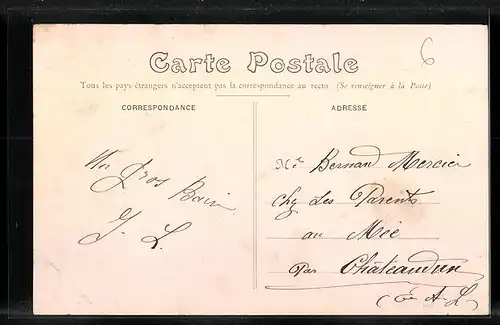 6
Carte Postale
Tous les pays étrangers n'acceptent pas la correspondance au recto (Se renseigner à la Poste)
CORRESPONDANCE
ADRESSE
Un Gros
J. L.
Mr Bernard Mercier
Chez Les Parents
au Mée
Par Châteaudun
E A L